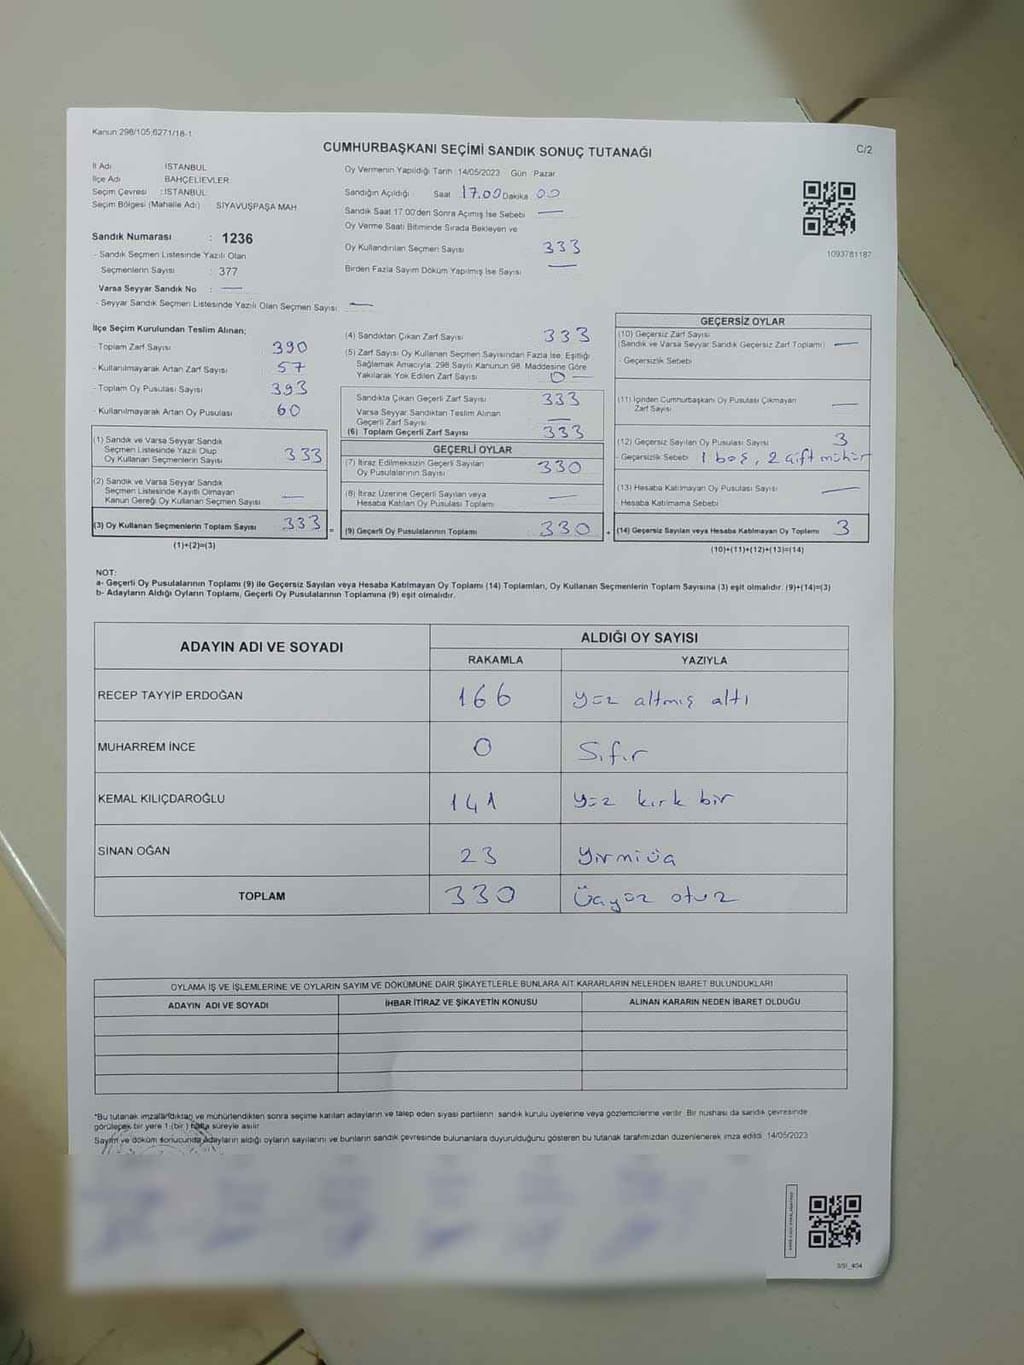 Kanun 298/105 6271/18-1
CUMHURBAŞKANI SEÇİMİ SANDIK SONUÇ TUTANAĞI
C/2
İl Adı : İSTANBUL
İlçe Adı : BAHÇELİEVLER
Seçim Çevresi : İSTANBUL
Seçim Bölgesi (Mahalle Adı) : SİYAVUŞPAŞA MAH
Sandık Numarası : 1236
- Sandık Seçmen Listesinde Yazılı Olan
Seçmenlerin Sayısı : 377
Varsa Seyyar Sandık No : —
- Seyyar Sandık Seçmen Listesinde Yazılı Olan Seçmen Sayısı : —
Oy Vermenin Yapıldığı Tarih 14/05/2023 Gün Pazar
Sandığın Açıldığı Saat 17.00 Dakika 00
Sandık Saat 17 00'den Sonra Açılmış İse Sebebi —
Oy Verme Saati Bitiminde Sırada Bekleyen ve
Oy Kullandırılan Seçmen Sayısı 333
Birden Fazla Sayım Döküm Yapılmış İse Sayısı —
1093781187
İlçe Seçim Kurulundan Teslim Alınan;
- Toplam Zarf Sayısı 390
- Kullanılmayarak Artan Zarf Sayısı 57
- Toplam Oy Pusulası Sayısı 393
- Kullanılmayarak Artan Oy Pusulası 60
(1) Sandık ve Varsa Seyyar Sandık
Seçmen Listesinde Yazılı Olup
Oy Kullanan Seçmenlerin Sayısı 333
(2) Sandık ve Varsa Seyyar Sandık
Seçmen Listesinde Kayıtlı Olmayan
Kanun Gereği Oy Kullanan Seçmen Sayısı —
(3) Oy Kullanan Seçmenlerin Toplam Sayısı 333 =
(1)+(2)=(3)
(4) Sandıktan Çıkan Zarf Sayısı 333
(5) Zarf Sayısı Oy Kullanan Seçmen Sayısından Fazla İse, Eşitliği
Sağlamak Amacıyla, 298 Sayılı Kanunun 98. Maddesine Göre
Yakılarak Yok Edilen Zarf Sayısı 0 —
Sandıkta Çıkan Geçerli Zarf Sayısı 333
Varsa Seyyar Sandıktan Teslim Alınan
Geçerli Zarf Sayısı —
(6) Toplam Geçerli Zarf Sayısı 333
GEÇERLİ OYLAR
(7) İtiraz Edilmeksizin Geçerli Sayılan
Oy Pusulalarının Sayısı 330
(8) İtiraz Üzerine Geçerli Sayılan veya
Hesaba Katılan Oy Pusulası Toplamı —
(9) Geçerli Oy Pusulalarının Toplamı 330 +
GEÇERSİZ OYLAR
(10) Geçersiz Zarf Sayısı
(Sandık ve Varsa Seyyar Sandık Geçersiz Zarf Toplamı) —
- Geçersizlik Sebebi
(11) İçinden Cumhurbaşkanı Oy Pusulası Çıkmayan
Zarf Sayısı —
(12) Geçersiz Sayılan Oy Pusulası Sayısı 3
- Geçersizlik Sebebi 1 boş, 2 çift mühür
(13) Hesaba Katılmayan Oy Pusulası Sayısı —
Hesaba Katılmama Sebebi
(14) Geçersiz Sayılan veya Hesaba Katılmayan Oy Toplamı 3
(10)+(11)+(12)+(13)=(14)
NOT:
a- Geçerli Oy Pusulalarının Toplamı (9) ile Geçersiz Sayılan veya Hesaba Katılmayan Oy Toplamı (14) Toplamları, Oy Kullanan Seçmenlerin Toplam Sayısına (3) eşit olmalıdır. (9)+(14)=(3)
b- Adayların Aldığı Oyların Toplamı, Geçerli Oy Pusulalarının Toplamına (9) eşit olmalıdır.
ADAYIN ADI VE SOYADI
ALDIĞI OY SAYISI
RAKAMLA YAZIYLA
RECEP TAYYİP ERDOĞAN 166 yüz altmış altı
MUHARREM İNCE 0 Sıfır
KEMAL KILIÇDAROĞLU 141 yüz kırk bir
SİNAN OĞAN 23 Yirmiüç
TOPLAM 330 Üçyüz otuz
OYLAMA İŞ VE İŞLEMLERİNE VE OYLARIN SAYIM VE DÖKÜMÜNE DAİR ŞİKAYETLERLE BUNLARA AİT KARARLARIN NELERDEN İBARET BULUNDUKLARI
ADAYIN ADI VE SOYADI İHBAR İTİRAZ VE ŞİKAYETİN KONUSU ALINAN KARARIN NEDEN İBARET OLDUĞU
*Bu tutanak imzalandıktan ve mühürlendikten sonra seçime katılan adayların ve talep eden siyasi partilerin sandık kurulu üyelerine veya gözlemcilerine verilir. Bir nüshası da sandık çevresinde
görülecek bir yere 1 (bir) hafta süreyle asılır
Sayım ve döküm sonucunda adayların aldığı oyların sayılarını ve bunların sandık çevresinde bulunanlara duyurulduğunu gösteren bu tutanak tarafımızdan düzenlenerek imza edildi. 14/05/2023